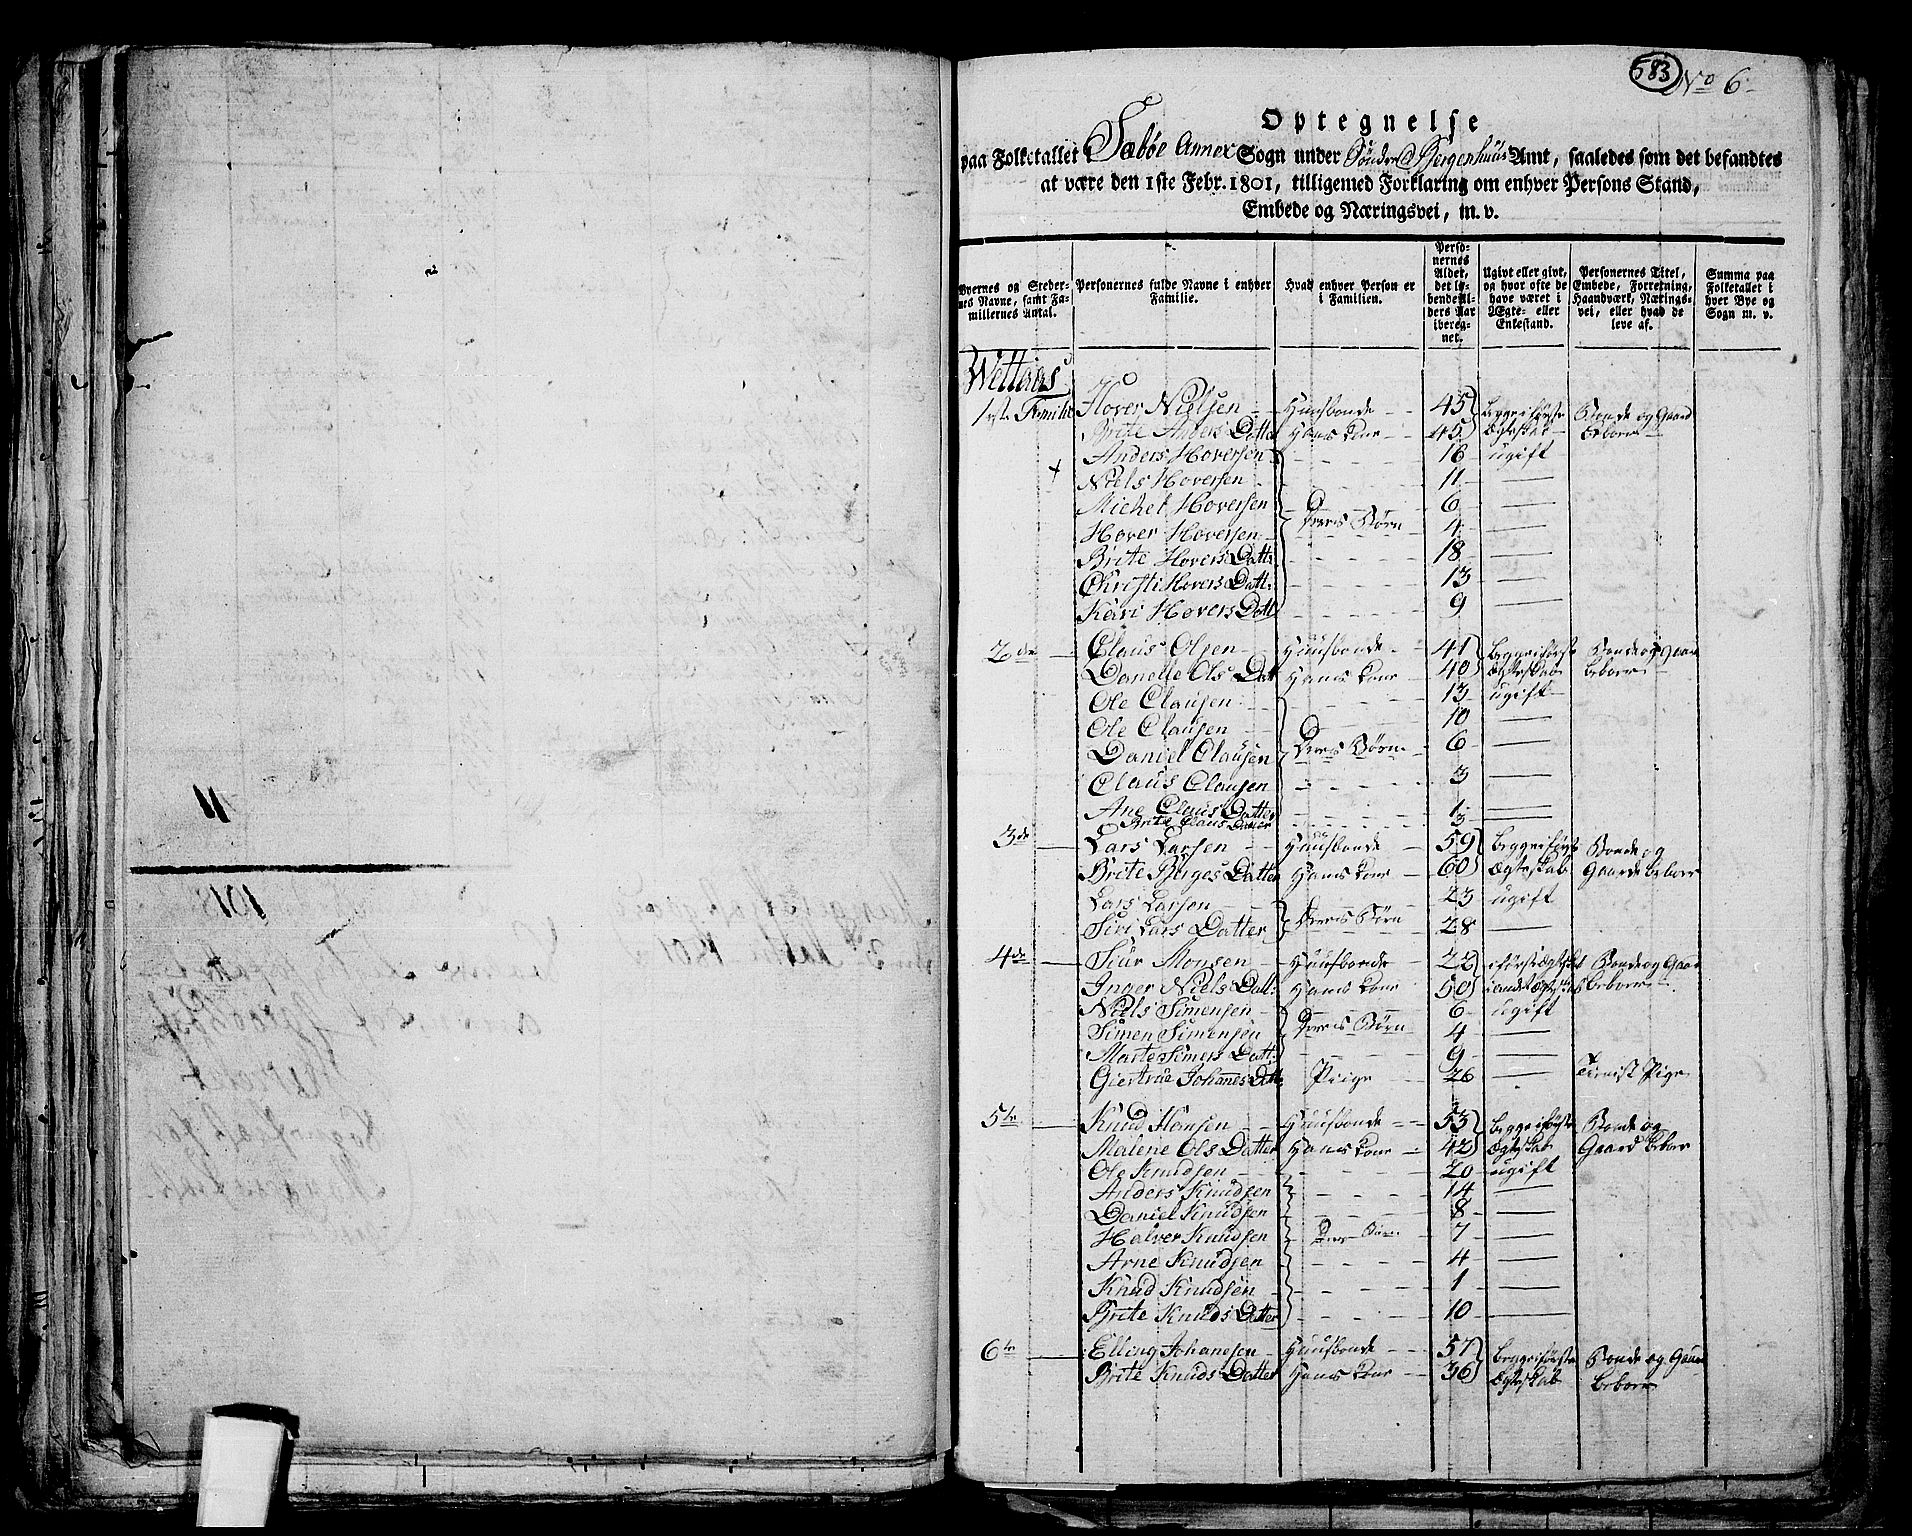 583 No 6
Optegnelse
paa Folketallet i Sæbøe Annex Sogn under Søndre Bergenhuus Amt, saaledes som det befandtes
at være den 1ste Febr. 1801, tilligemed Forklaring om enhver Persons Stand,
Embede og Næringsvei, m. v.
Byernes og Stedernes Navne, samt Familiernes Antal. | Personernes fulde Navne i enhver Familie. | Hvad enhver Person er i Familien. | Personernes Alder, det løbende Alders Aar iberegnet. | Ugivt eller givt, og hvor ofte de have været i Ægte- eller Enkestand. | Personernes Titel, Embede, Forretning, Haandværk, Næringsvei, eller hvad de leve af. | Summa paa Folketallet i hver Bye og Sogn m. v.
Wettaas
1ste Familie Hover Nielsen Huusbonde 45 begge i første Bonde og Gaard
Brite Anders Datter Hans Kone 45 Ægteskab beboer
Anders Hoversen 16 ugift
+ Niels Hoversen 11
Michel Hoversen 6
Hover Hoversen Deres Børn 4
Brite Hovers Datt: 18
Christi Hovers Datt: 13
Kari Hovers Datt 9
2de Claus Olsen Huusbonde 41 begge i første Bonde og Gaard
Danelle Ols Datt Hans Kone 40 Ægteskab beboer
Ole Clausen 13 ugift
Ole Clausen 10
Daniel Clausen Deres Børn 6
Claus Clausen 3
Ane Claus Datter 1
Brite Claus Datter 3
3de Lars Larsen Huusbonde 59 begge i første Bonde og
Brite Børges Datter Hans Kone 60 Ægteskab Gaard beboer
Lars Larsen 23 ugift
Siri Lars Datter Deres Børn 28
4de Siur Monsen Huusbonde 22 i første Ægteskab Bonde og Gaard
Inger Niels Datt: Hans Kone 50 i andet Ægteskab beboer
Niels Simensen 6 ugift
Simen Simensen Deres Børn 4
Marte Simens Datt: 9
Giertrue Johanes Datt Piige 26 Tienist Pige
5te Knud Hansen Huusbonde 53 begge i første Bonde og
Malene Ols Datter Hans Kone 42 Ægteskab Gaard beboer
Ole Knudsen 20 ugift
Anders Knudsen 14
Daniel Knudsen 8
Halver Knudsen Deres Børn 7
Arne Knudsen 4
Knud Knudsen 1
Brite Knuds Datter 10
6te Elling Johanesen Huusbonde 57 begge i første Bonde og Gaard
Brite Knuds Datter Hans Kone 36 Ægteskab beboer